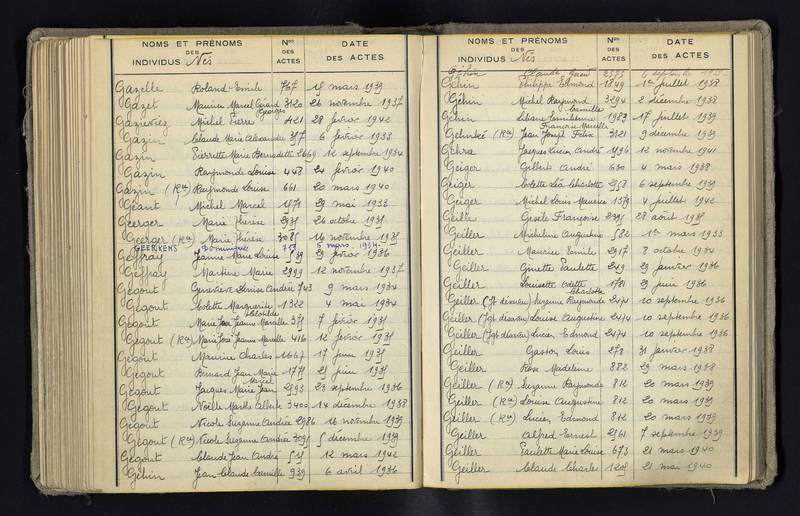 NOMS ET PRÉNOMS
DES
INDIVIDUS Nés
Nos
DES
ACTES
DATE
DES ACTES
Gazelle Roland Emile 767 19 mars 1939
Gazet Maurice Marcel 3120 26 novembre 1937
Georges
Michel Pierre 421 28 février 1942
Gazin Claude Marie Alexandre 317 6 février 1933
Gazin Pierrette Marie Bernadette 2669 12 septembre 1934
Gazin Raymonde Louise 448 21 février 1940
Gazin (Rce) Raymonde Louise 661 20 mars 1940
Géant Michel Marcel 1471 29 mai 1933
Geerger Marie Thérèse 2931 26 octobre 1935
Geerger (Rce) Marie Thérèse 3085 16 novembre 1935
GEERKENS Dominique 751 5 mars 1954
Geffray Jeanne Marie Louise 539 29 février 1936
Geffray Martine Marie 2999 12 novembre 1937
Gégout Geneviève Denise Andrée 743 9 mars 1934
Gégout Colette Marguerite 1322 4 mai 1934
Clotilde
Gégout Marie José Jeanne Marcelle 371 7 février 1935
Gégout (Rce) Marie José Jeanne Marcelle 416 12 février 1935
Gégout Maurice Charles 1667 17 juin 1935
Gégout Bernard Jean Marie 1771 25 juin 1935
Marcel
Gégout Jacques Marie Jean 2593 23 septembre 1936
Gégout Noëlle Marthe Alberte 3400 14 décembre 1938
Gégout Nicole Suzanne Andrée 2986 16 novembre 1939
Gégout (Rce) Nicole Suzanne Andrée 3091 5 décembre 1939
Gégout Claude Jean André 551 12 mars 1942
Géhin Jean Claude Camille 939 6 avril 1936
NOMS ET PRÉNOMS
DES
INDIVIDUS Nés
Nos
DES
ACTES
DATE
DES ACTES
Géhin Claude 2555 6 septembre
Géhin Philippe Edmond 1849 1er juillet 1938
Géhin Michel Raymond 3294 2 décembre 1938
Camille
Géhin Liliane Emilienne 1983 17 juillet 1939
Francine Marcelle
Gehnké (Rce) Jean Joseph Félix 3121 9 décembre 1939
Gehra Jacques Lucien André 1796 12 novembre 1941
Geiger Gilbert André 630 4 mars 1938
Geiger Colette Léa Charlotte 2558 6 septembre 1939
Geiger Michel Louis Maurice 1579 4 juillet 1942
Geille Gisèle Françoise 2395 28 août 1935
Geiller Micheline Augustine 582 1er mars 1933
Geiller Maurice Emile 2917 8 octobre 1934
Geiller Ginette Paulette 249 29 janvier 1936
Geiller Louisette Odette 1781 29 juin 1936
Charlotte
Geiller (Jgt désaveu) Suzanne Raymonde 2474 10 septembre 1936
Geiller (Jgt désaveu) Louise Augustine 2474 10 septembre 1936
Geiller (Jgt désaveu) Lucien Edmond 2474 10 septembre 1936
Geiller Gaston Louis 278 31 janvier 1938
Geiller Rose Madeleine 882 29 mars 1938
Geiller (Rce) Suzanne Raymonde 812 20 mars 1939
Geiller (Rce) Louise Augustine 812 20 mars 1939
Geiller (Rce) Lucien Edmond 812 20 mars 1939
Geiller Alfred Ernest 2561 7 septembre 1939
Geiller Paulette Marie Louise 673 21 mars 1940
Geiller Claude Charles 1205 21 mai 1940